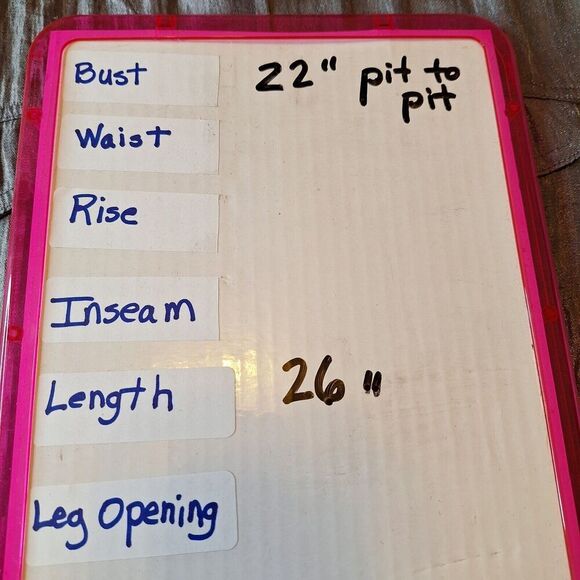 Bust 22" pit to
pit
Waist
Rise
Inseam
Length 26"
Leg Opening